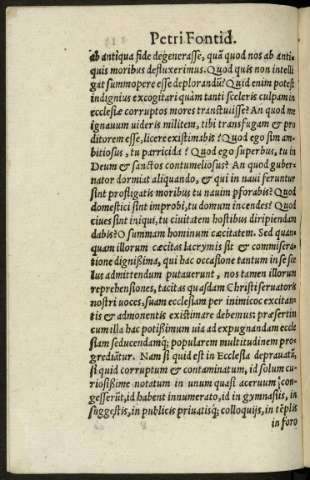 Petri Fontid.
ab antiqua fide degenerasse, quã quod nos ab anti-
quis moribus defluxerimus. Quod quis non intelli
gat summopere esse deplorandũ? Quid enim potest
indignius excogitari quàm tanti sceleris culpam in
ecclesiæ corruptos mores transtulisse? An quod me
ignauum uideris militem, tibi transfugam & pro
ditorem esse, licere existimabis? Quod ego sim am-
bitiosus, tu parricida? Quod ego superbus, tu in
Deum & sanctos contumeliosus? An quod guber-
nator dormiat aliquando, & qui in naui feruntur
sint profligatis moribus tu nauim pforabis? Quod
domestici sint improbi, tu domum incendes? Quod
ciues sint iniqui, tu ciuitatem hostibus diripiendam
dabis? O summam hominum cæcitatem. Sed quan-
quam illorum cæcitas lacrymis sit & commisera-
tione dignissima, qui hac occasione tantum in se sce
lus admittendum putauerunt, nos tamen illorum
reprehensiones, tacitas quasdam Christi seruatoris
nostri uoces, suam ecclesiam per inimicos excitan-
tis & admonentis existimare debemus: præsertim
cum illa hac potissimum uia ad expugnandam eccle
siam seducendamq; popularem multitudinem pro-
grediũtur. Nam si quid est in Ecclesia deprauatũ,
si quid corruptum & contaminatum, id solum cu-
riosissime notatum in unum quasi aceruum con-
gesserũt, id habent innumerato, id in gymnasiis, in
suggestis, in publicis priuatisq; colloquijs, in tẽplis
in foro